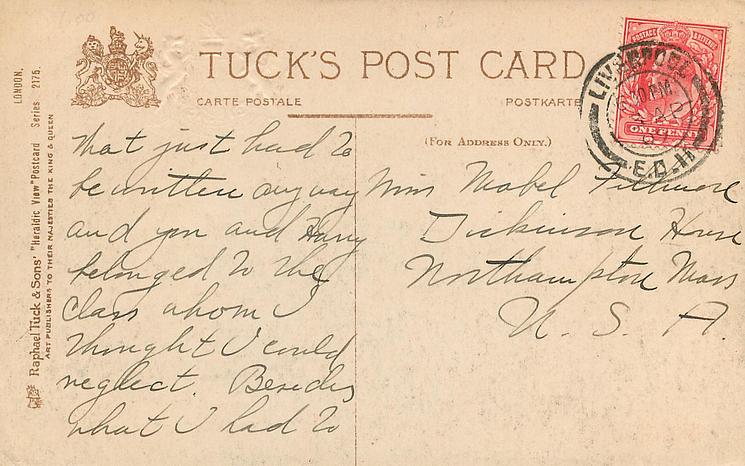 TUCK'S POST CARD
CARTE POSTALE
POSTKARTE
(FOR ADDRESS ONLY.)
LONDON.
Raphael Tuck & Sons' "Heraldic View" Postcard Series 2175.
ART PUBLISHERS TO THEIR MAJESTIES THE KING & QUEEN
POSTAGE REVENUE
ONE PENNY
LIVERPOOL
PM
E.D.
that just had to
be written anyway
and you and Harry
belonged to the
class whom I
thought I could
neglect. Besides
what I had to
Miss Mabel Fillmore
Dickinson House
Northampton Mass
U. S. A.